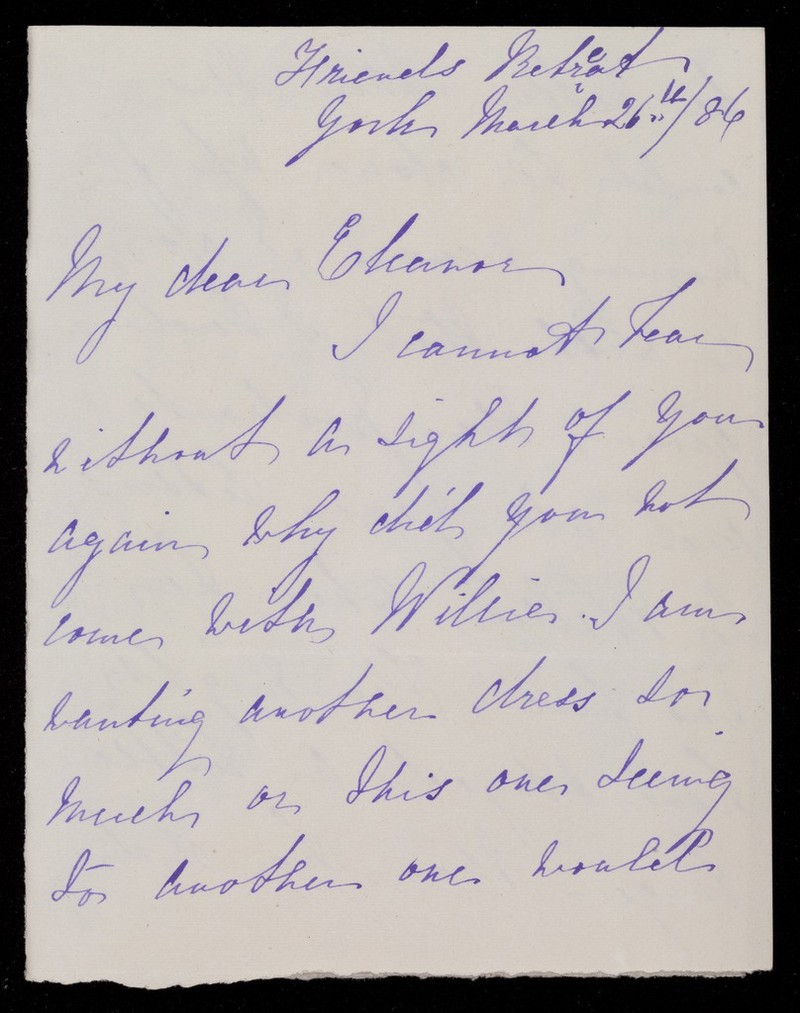 Friends Retreat
York March 26th/86
My dear Eleanor
I cannot bear
without a sight of you
again why did you not
come with Willie. I am
wanting another dress so
much or this one seeing
to another one would